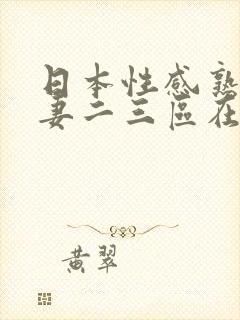 日本性感熟
妻二三區在
黄翠